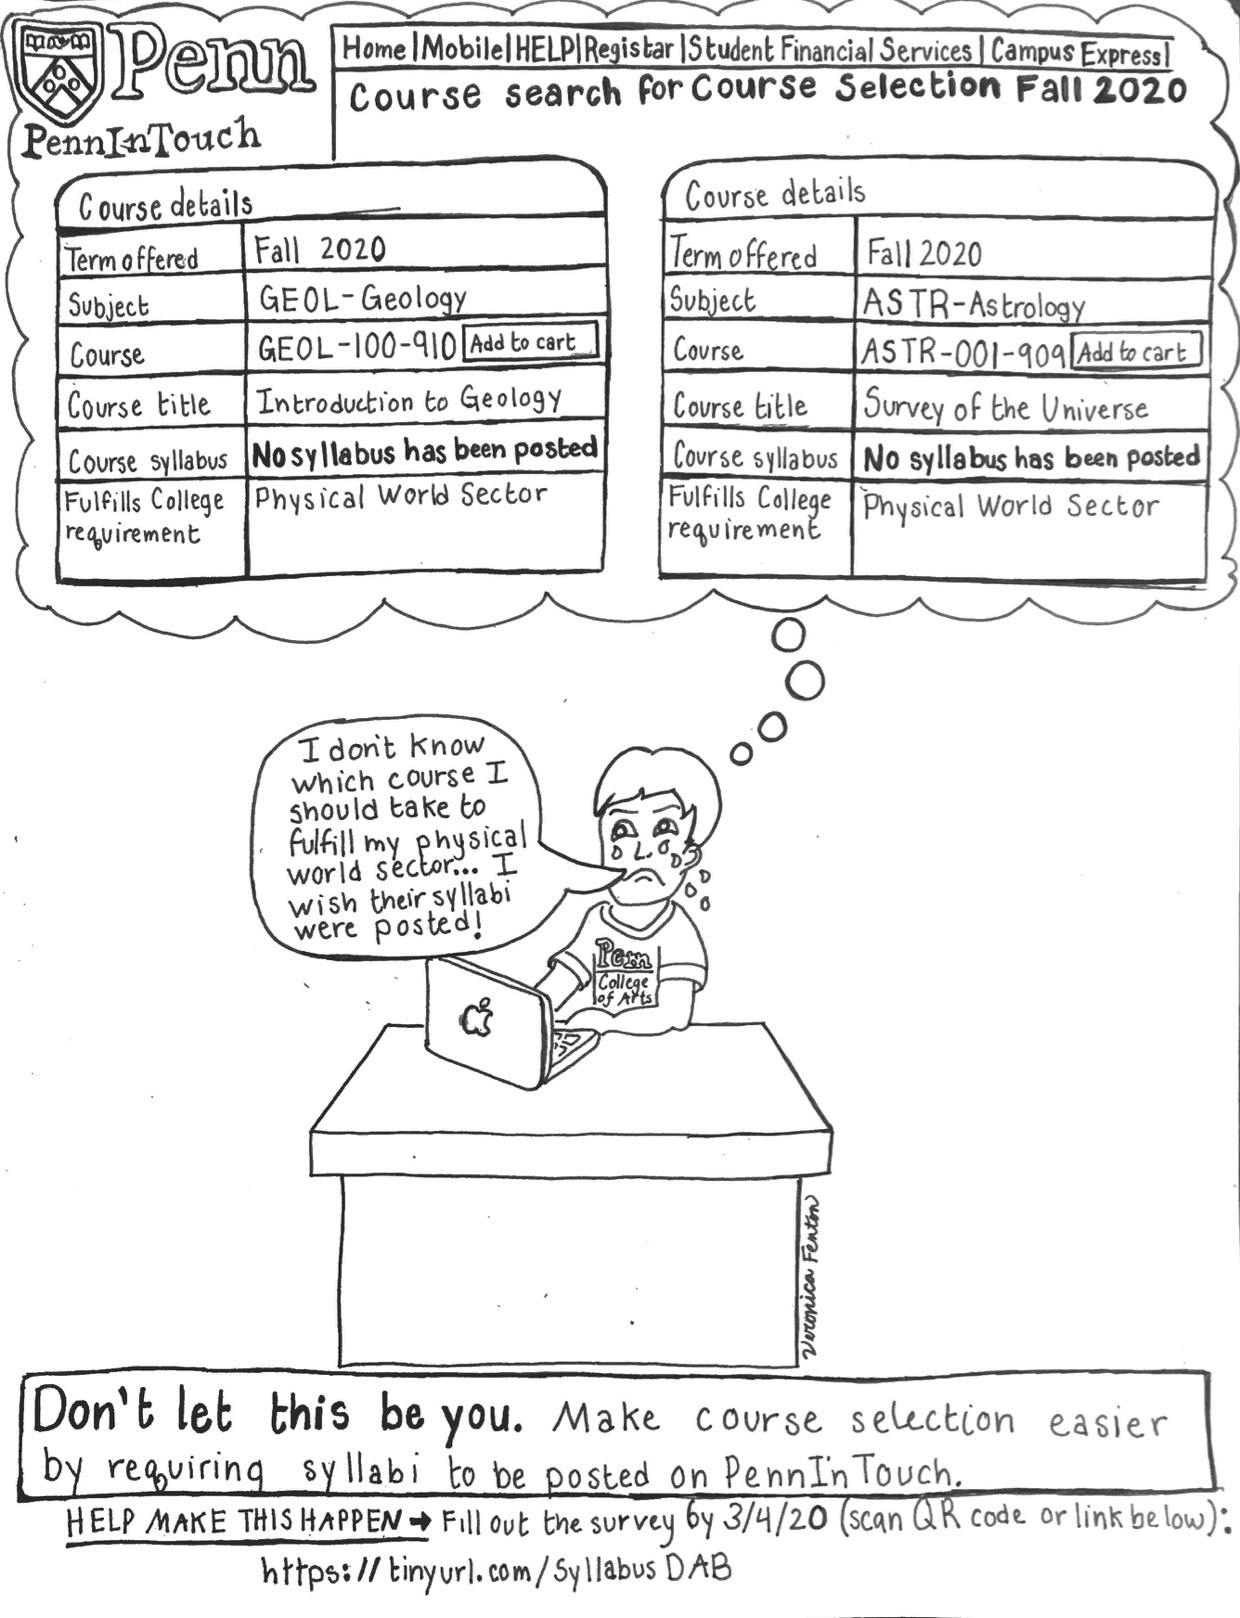 Penn
PennInTouch
Home|Mobile|HELP|Registar|Student Financial Services|Campus Express|
Course search for Course Selection Fall 2020
Course details
Term offered Fall 2020
Subject GEOL-Geology
Course GEOL-100-910 Add to cart
Course title Introduction to Geology
Course syllabus No syllabus has been posted
Fulfills College Physical World Sector
requirement
Course details
Term offered Fall 2020
Subject ASTR-Astrology
Course ASTR-001-909 Add to cart
Course title Survey of the Universe
Course syllabus No syllabus has been posted
Fulfills College Physical World Sector
requirement
I don't know
which course I
should take to
fulfill my physical
world sector... I
wish their syllabi
were posted!
Penn
College
of Arts
Veronica Fenton
Don't let this be you. Make course selection easier
by requiring syllabi to be posted on PennInTouch.
HELP MAKE THIS HAPPEN → Fill out the survey by 3/4/20 (scan QR code or link below):
https://tinyurl.com/SyllabusDAB